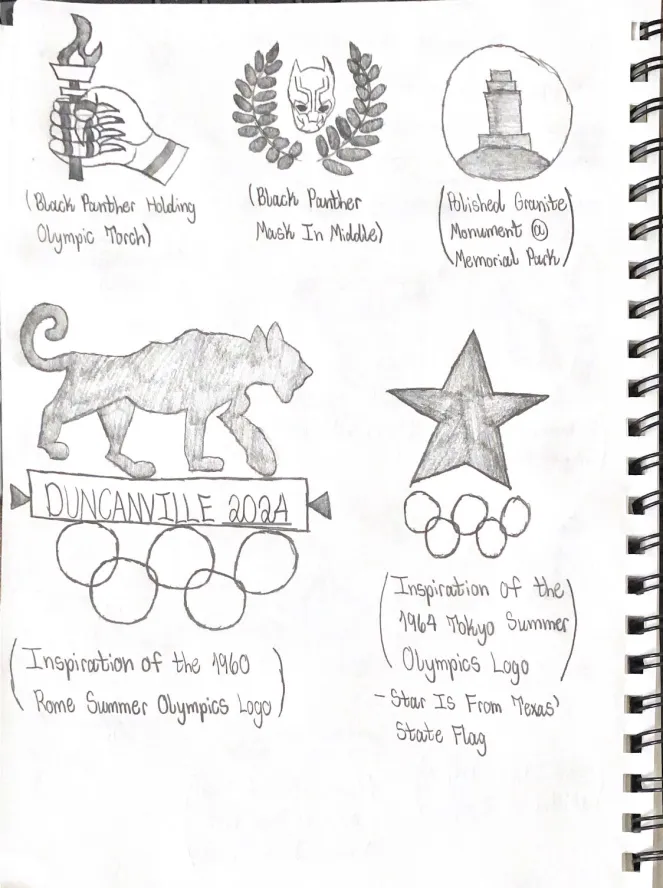 (Black Panther Holding
Olympic Torch)
(Black Panther
Mask In Middle)
(Polished Granite
Monument @
Memorial Park)
DUNCANVILLE 2024
(Inspiration of the 1960
Rome Summer Olympics Logo)
(Inspiration of the
1964 Tokyo Summer
Olympics Logo)
- Star Is From Texas'
State Flag